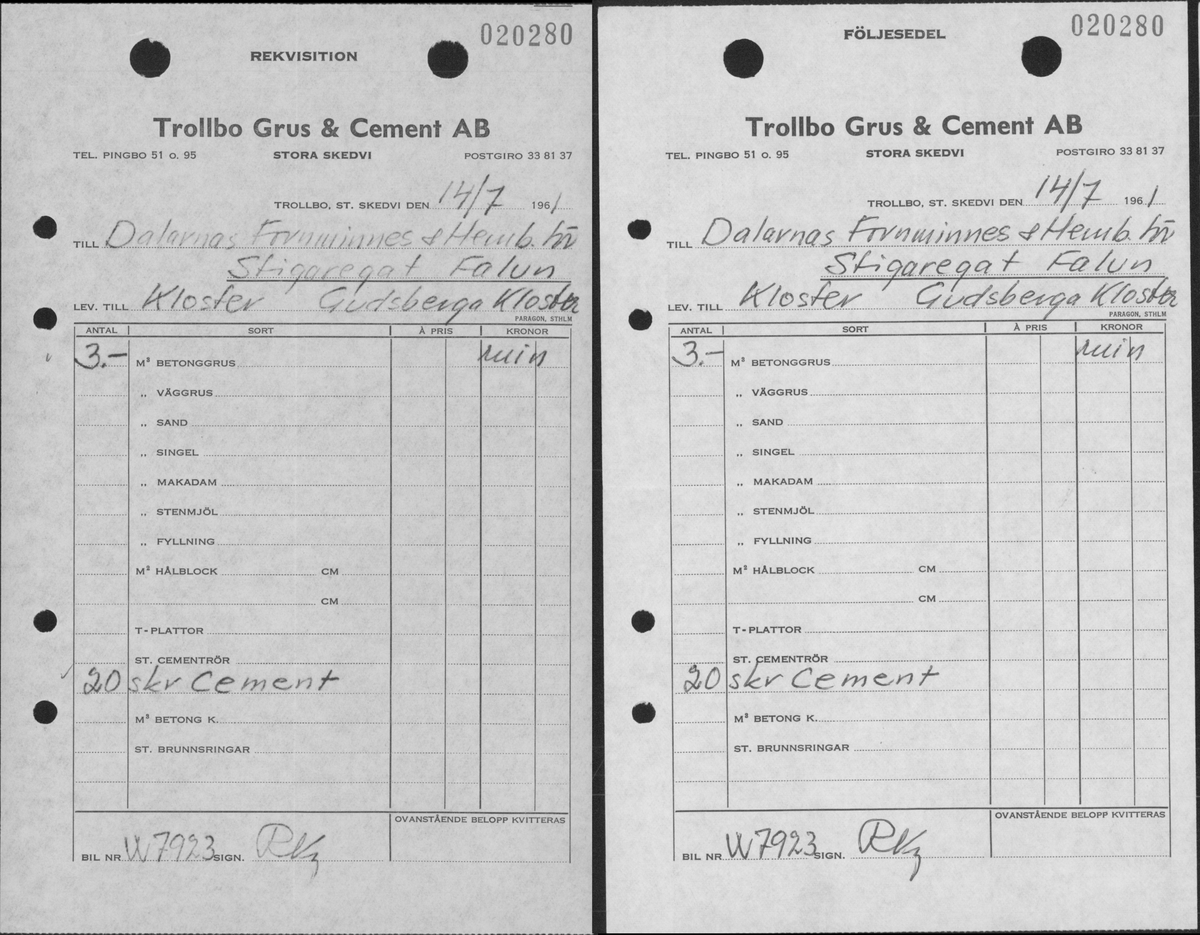 020280
REKVISITION
Trollbo Grus & Cement AB
TEL. PINGBO 51 o. 95 STORA SKEDVI POSTGIRO 33 81 37
TROLLBO, ST. SKEDVI DEN 14/7 1961
TILL Dalarnas Fornminnes & Hemb. för
Stigaregat Falun
LEV. TILL Kloster Gudsberga Kloster
PARAGON, STHLM
ANTAL SORT À PRIS KRONOR
3.- M³ BETONGGRUS ruin
„ VÄGGRUS
„ SAND
„ SINGEL
„ MAKADAM
„ STENMJÖL
„ FYLLNING
M² HÅLBLOCK CM
CM
T-PLATTOR
ST. CEMENTRÖR
20 skr Cement
M³ BETONG K.
ST. BRUNNSRINGAR
OVANSTÅENDE BELOPP KVITTERAS
BIL NR W7923 SIGN.
020280
FÖLJESEDEL
Trollbo Grus & Cement AB
TEL. PINGBO 51 o. 95 STORA SKEDVI POSTGIRO 33 81 37
TROLLBO, ST. SKEDVI DEN 14/7 1961
TILL Dalarnas Fornminnes & Hemb. för
Stigaregat Falun
LEV. TILL Kloster Gudsberga Kloster
PARAGON, STHLM
ANTAL SORT À PRIS KRONOR
3.- M³ BETONGGRUS ruin
„ VÄGGRUS
„ SAND
„ SINGEL
„ MAKADAM
„ STENMJÖL
„ FYLLNING
M² HÅLBLOCK CM
CM
T-PLATTOR
ST. CEMENTRÖR
20 skr Cement
M³ BETONG K.
ST. BRUNNSRINGAR
OVANSTÅENDE BELOPP KVITTERAS
BIL NR W7923 SIGN.